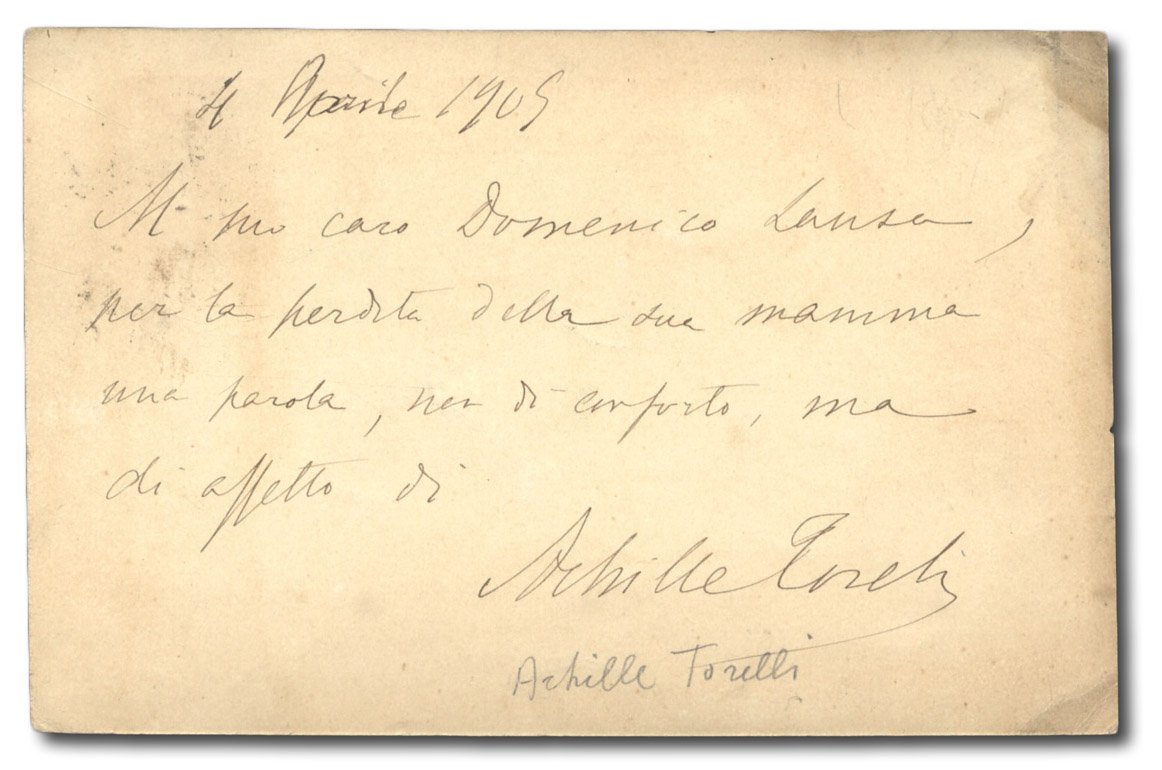 4 Aprile 1905
Al suo caro Domenico Lanza,
per la perdita della sua mamma
una parola, non di conforto, ma
di affetto di
Achille Torelli
Achille Torelli